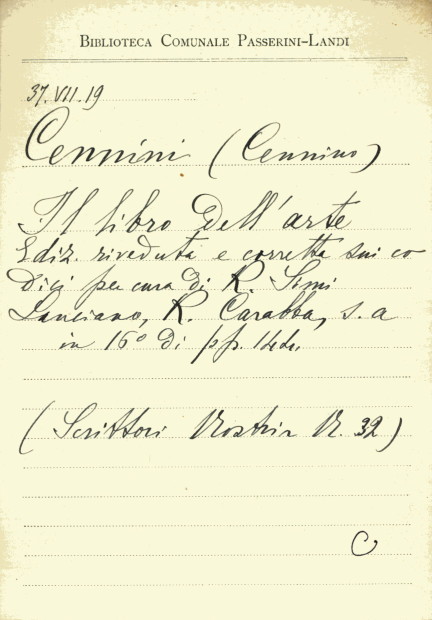 BIBLIOTECA COMUNALE PASSERINI-LANDI
37.VII.19
Cennini (Cennino)
Il libro dell'arte
Ediz. riveduta e corretta sui co
dici per cura di R. Simi
Lanciano, R. Carabba, s. a
in 16° di pp.
(Scrittori Nostri N. 32)
C